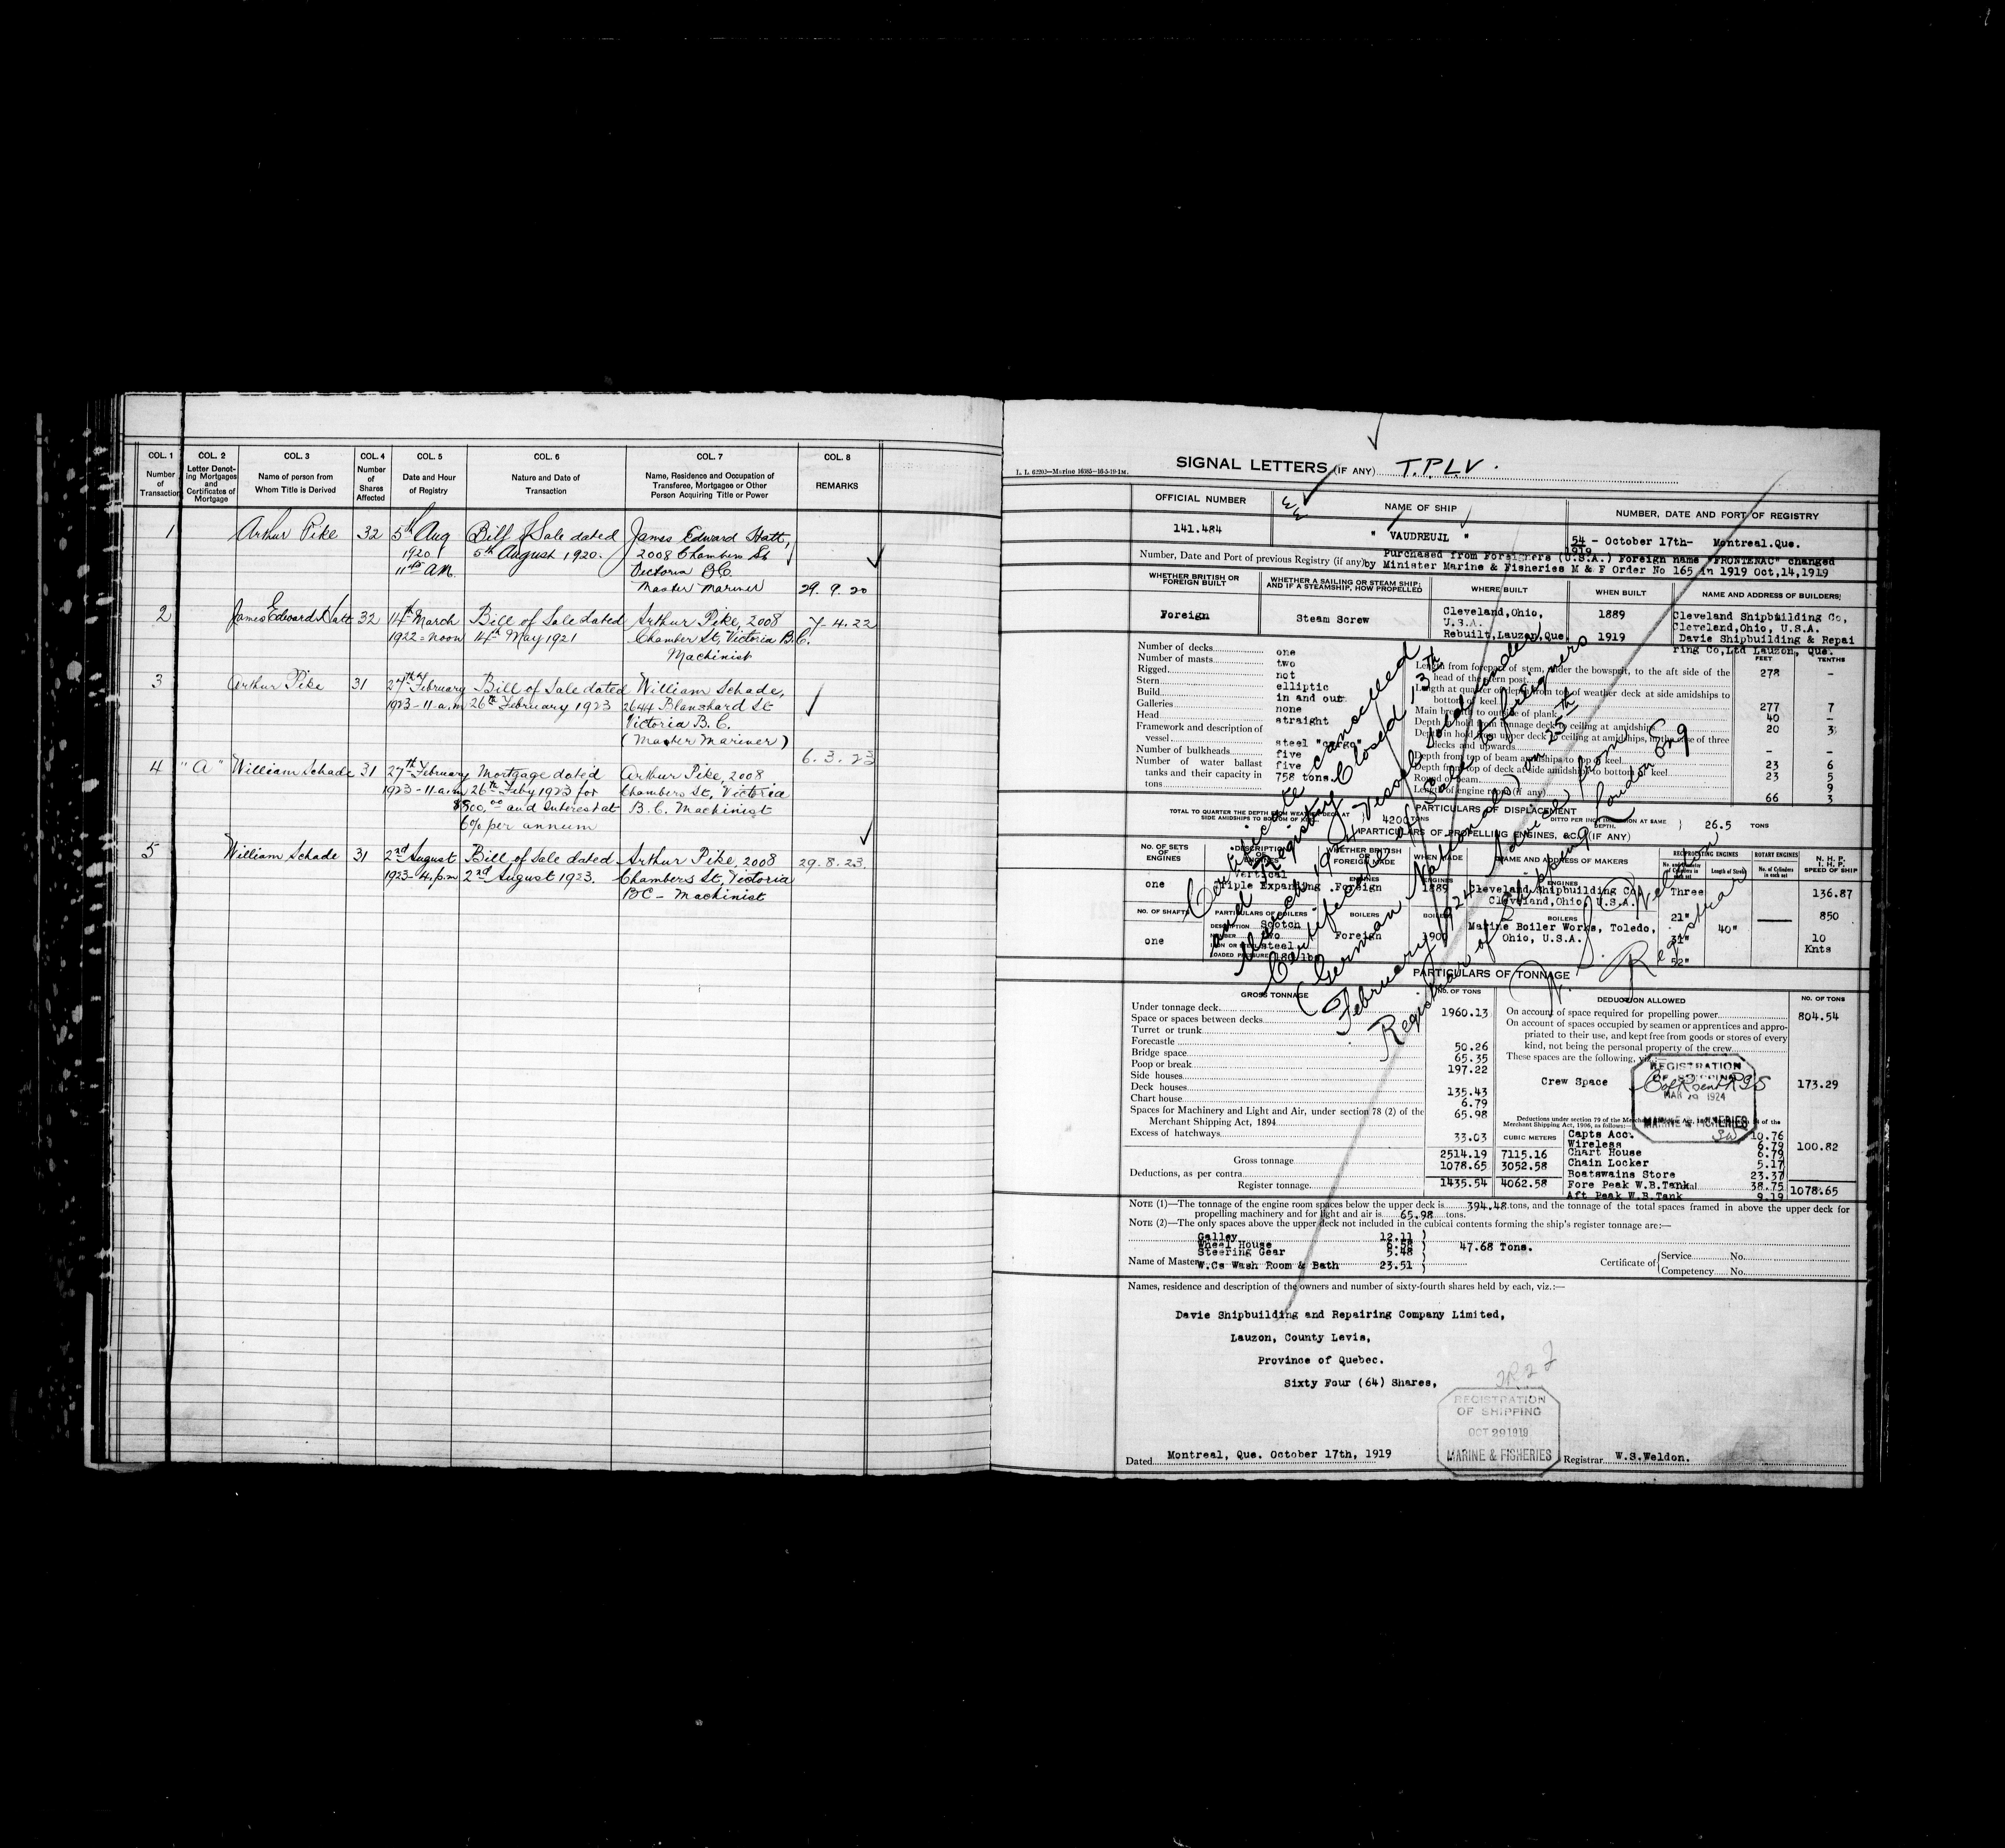 COL. 1 COL. 2 COL. 3 COL. 4 COL. 5 COL. 6 COL. 7 COL. 8
Number of Transaction
Letter Denoting Mortgages and Certificates of Mortgage
Name of person from Whom Title is Derived
Number of Shares Affected
Date and Hour of Registry
Nature and Date of Transaction
Name, Residence and Occupation of Transferee, Mortgagee or Other Person Acquiring Title or Power
REMARKS
1 Arthur Pike 32 5th Aug Bill of Sale dated James Edward Hatt,
1920 5th August 1920. 2008 Chambers St
11 a.m. Victoria B.C.
Master Mariner 29. 9. 20
2 James Edward Hatt 32 14th March Bill of Sale dated Arthur Pike, 2008 7. 4. 22
1922 - noon 14th May 1921 Chamber St, Victoria B.C.
Machinist
3 Arthur Pike 31 27th February Bill of Sale dated William Schade,
1923 - 11. a.m 26th February 1923 2644 Blanshard St
Victoria B. C.
(Master Mariner)
6. 3. 23
4 "A" William Schade 31 27th February Mortgage dated Arthur Pike, 2008
1923 - 11. a.m 26th Feby 1923 for Chambers St, Victoria
$800.00 and Interest at B. C. Machinist
6% per annum
5 William Schade 31 2nd August Bill of Sale dated Arthur Pike, 2008 29. 8. 23.
1923 - 4. p.m 2nd August 1923. Chambers St, Victoria
BC - Machinist
SIGNAL LETTERS (IF ANY) T.P.L.V.
OFFICIAL NUMBER
NAME OF SHIP
NUMBER, DATE AND PORT OF REGISTRY
141.484
" VAUDREUIL "
54 - October 17th- Montreal.Que.
1919
Number, Date and Port of previous Registry (if any) Purchased from Foreigners (U.S.A.) Foreign name "FRONTENAC" changed
by Minister Marine & Fisheries M & F Order No 165 in 1919 Oct,14,1919
WHETHER BRITISH OR FOREIGN BUILT
WHETHER A SAILING OR STEAM SHIP; AND IF A STEAMSHIP, HOW PROPELLED
WHERE BUILT
WHEN BUILT
NAME AND ADDRESS OF BUILDERS
Foreign
Steam Screw
Cleveland,Ohio, 1889 Cleveland Shipbuilding Co,
U.S.A. Cleveland,Ohio, U.S.A.
Rebuilt,Lauzon,Que. 1919 Davie Shipbuilding & Repai
ring Co,Ltd Lauzon, Que.
FEET TENTHS
Number of decks one
Number of masts two
Rigged not
Stern elliptic
Build in and out
Galleries none
Head straight
Framework and description of vessel steel "cargo"
Number of bulkheads five
Number of water ballast five
tanks and their capacity in 758 tons.
tons
Length from forepart of stem, under the bowsprit, to the aft side of the head of the stern post 278 -
Length at quarter of depth from top of weather deck at side amidships to bottom of keel 277 7
Main breadth to outside of plank 40 -
Depth in hold from tonnage deck to ceiling at amidships 20 3
Depth in hold from upper deck to ceiling at amidships, in the case of three decks and upwards - -
Depth from top of beam amidships to top of keel 23 6
Depth from top of deck at side amidships to bottom of keel 23 5
Round of beam 9
Length of engine room (if any) 66 3
PARTICULARS OF DISPLACEMENT
TOTAL TO QUARTER THE DEPTH FROM WEATHER DECK AT SIDE AMIDSHIPS TO BOTTOM OF KEEL 4200 TONS
DITTO PER INCH IMMERSION AT SAME DEPTH. 26.5 TONS
PARTICULARS OF PROPELLING ENGINES, &c. (IF ANY)
NO. OF SETS OF ENGINES
DESCRIPTION OF ENGINES
WHETHER BRITISH OR FOREIGN MADE
WHEN MADE
NAME AND ADDRESS OF MAKERS
RECIPROCATING ENGINES
ROTARY ENGINES
N. H. P.
I. H. P.
SPEED OF SHIP
one Vertical Triple Expanding Foreign 1889 Cleveland Shipbuilding Co Three 136.87
Cleveland,Ohio, U.S.A.
NO. OF SHAFTS
PARTICULARS OF BOILERS
BOILERS
one
Scotch
two
steel
180 lbs
Foreign
1900
Marine Boiler Works, Toledo,
Ohio, U.S.A.
21" 40" 850
31" 10 Knts
52"
PARTICULARS OF TONNAGE
GROSS TONNAGE NO. OF TONS
Under tonnage deck 1960.13
Space or spaces between decks
Turret or trunk
Forecastle 50.26
Bridge space 65.35
Poop or break 197.22
Side houses
Deck houses 135.43
Chart house 6.79
Spaces for Machinery and Light and Air, under section 78 (2) of the 65.98
Merchant Shipping Act, 1894
Excess of hatchways 33.03
CUBIC METERS
Gross tonnage 2514.19 7115.16
Deductions, as per contra 1078.65 3052.58
Register tonnage 1435.54 4062.58
DEDUCTION ALLOWED NO. OF TONS
On account of space required for propelling power 804.54
On account of spaces occupied by seamen or apprentices and appropriated to their use, and kept free from goods or stores of every kind, not being the personal property of the crew
These spaces are the following, viz:—
Crew Space 173.29
Capts Acc. 10.76
Wireless 6.79 100.82
Chart House 6.79
Chain Locker 5.17
Boatswains Store 23.37
Fore Peak W.B.Tank 38.75
Aft Peak W.B.Tank 9.19
1078.65
REGISTRATION OF SHIPPING
MAR 19 1924
MARINE & FISHERIES
NOTE (1)—The tonnage of the engine room spaces below the upper deck is 394.48 tons, and the tonnage of the total spaces framed in above the upper deck for
propelling machinery and for light and air is 65.98 tons.
NOTE (2)—The only spaces above the upper deck not included in the cubical contents forming the ship's register tonnage are:—
Galley 12.11
Wheel House 6.58
Steering Gear 5.48
47.68 Tons.
Name of Master W.Cs Wash Room & Bath 23.51
Certificate of Service No.
Competency No.
Names, residence and description of the owners and number of sixty-fourth shares held by each, viz.:—
Davie Shipbuilding and Repairing Company Limited,
Lauzon, County Levis,
Province of Quebec.
Sixty Four (64) Shares,
REGISTRATION
OF SHIPPING
OCT 29 1919
MARINE & FISHERIES
Dated Montreal, Que. October 17th, 1919
Registrar W.S.Weldon.
Certificate cancelled
and Registry Closed 13th
March 1924 Vessel sold under
Certificate of Sale to foreigners
(German Nationals) on 25th
February 1924 Advice from
Registrar of Shipping London Eng
Registrar